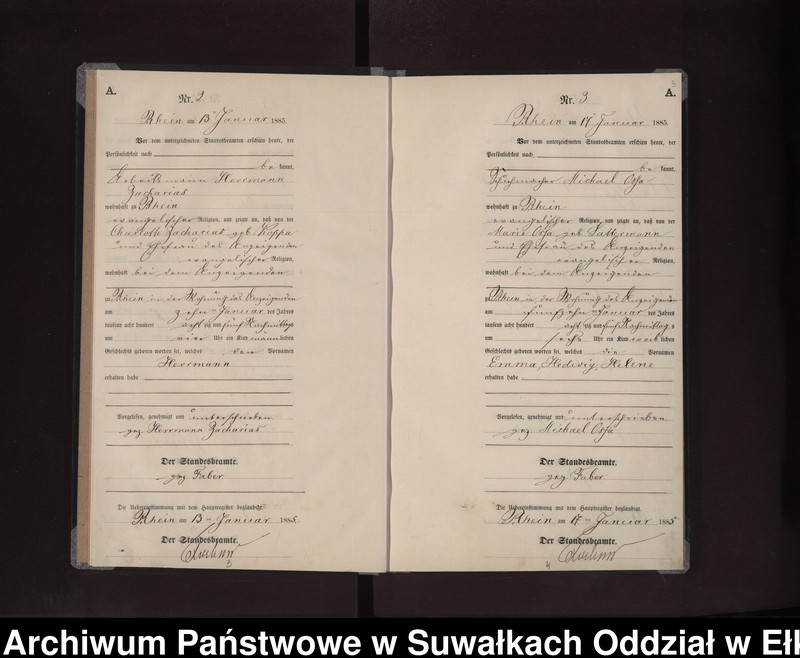 A.
Nr. 2
Rhein am 13ten Januar 1885.
Vor dem unterzeichneten Standesbeamten erschien heute, der
Persönlichkeit nach
be kannt,
Herrmann
Zacharias
wohnhaft zu Rhein
evangelischer Religion, und zeigte an, daß von der
Zacharias geb. Koppa
und Ehefrau des Anzeigenden
evangelischer Religion,
wohnhaft bei dem Anzeigenden
zu Rhein in der Wohnung des Anzeigenden
am zehn Januar des Jahres
tausend acht hundert acht zig und fünf Nachmittags
um vier Uhr ein Kind männ lichen
Geschlechts geboren worden sei, welches den Vornamen
Herrmann
erhalten habe
Vorgelesen, genehmigt und unterschrieben
gez. Herrmann Zacharias
Der Standesbeamte.
gez. Faber
Die Uebereinstimmung mit dem Hauptregister beglaubigt.
Rhein am 13ten Januar 1885.
Der Standesbeamte.
3
3
A.
Nr. 3
Rhein am 17ten Januar 1885.
Vor dem unterzeichneten Standesbeamten erschien heute, der
Persönlichkeit nach
be kannt,
Michael Ossa
wohnhaft zu Rhein
evangelischer Religion, und zeigte an, daß von der
Marie Ossa geb. Lattermann
und Ehefrau des Anzeigenden
evangelischer Religion,
wohnhaft bei dem Anzeigenden
zu Rhein in der Wohnung des Anzeigenden
am fünfzehn Januar des Jahres
tausend acht hundert acht zig und fünf Nachmittag s
um sechs Uhr ein Kind weib lichen
Geschlechts geboren worden sei, welches die Vornamen
Emma, Hedwig, Helene
erhalten habe
Vorgelesen, genehmigt und unterschrieben
gez. Michael Ossa
Der Standesbeamte.
gez. Faber
Die Uebereinstimmung mit dem Hauptregister beglaubigt.
Rhein am 17ten Januar 1885
Der Standesbeamte.
4
Archiwum Państwowe w Suwałkach Oddział w Ełk